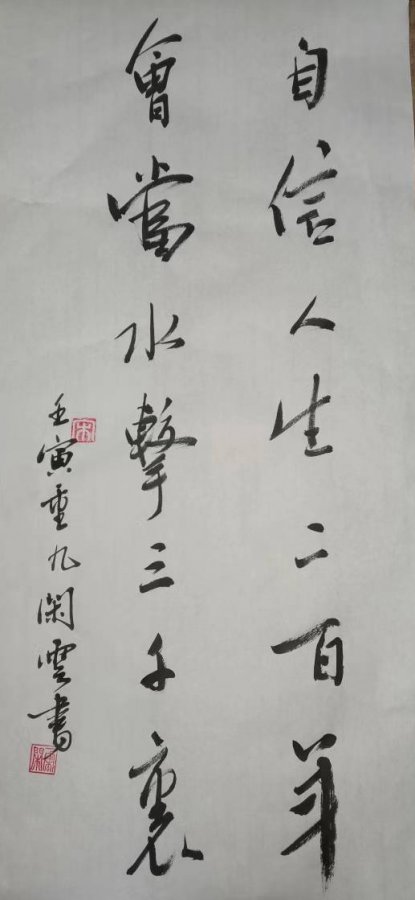 自信人生二百年
會當水擊三千裏
壬寅重九閑雲書